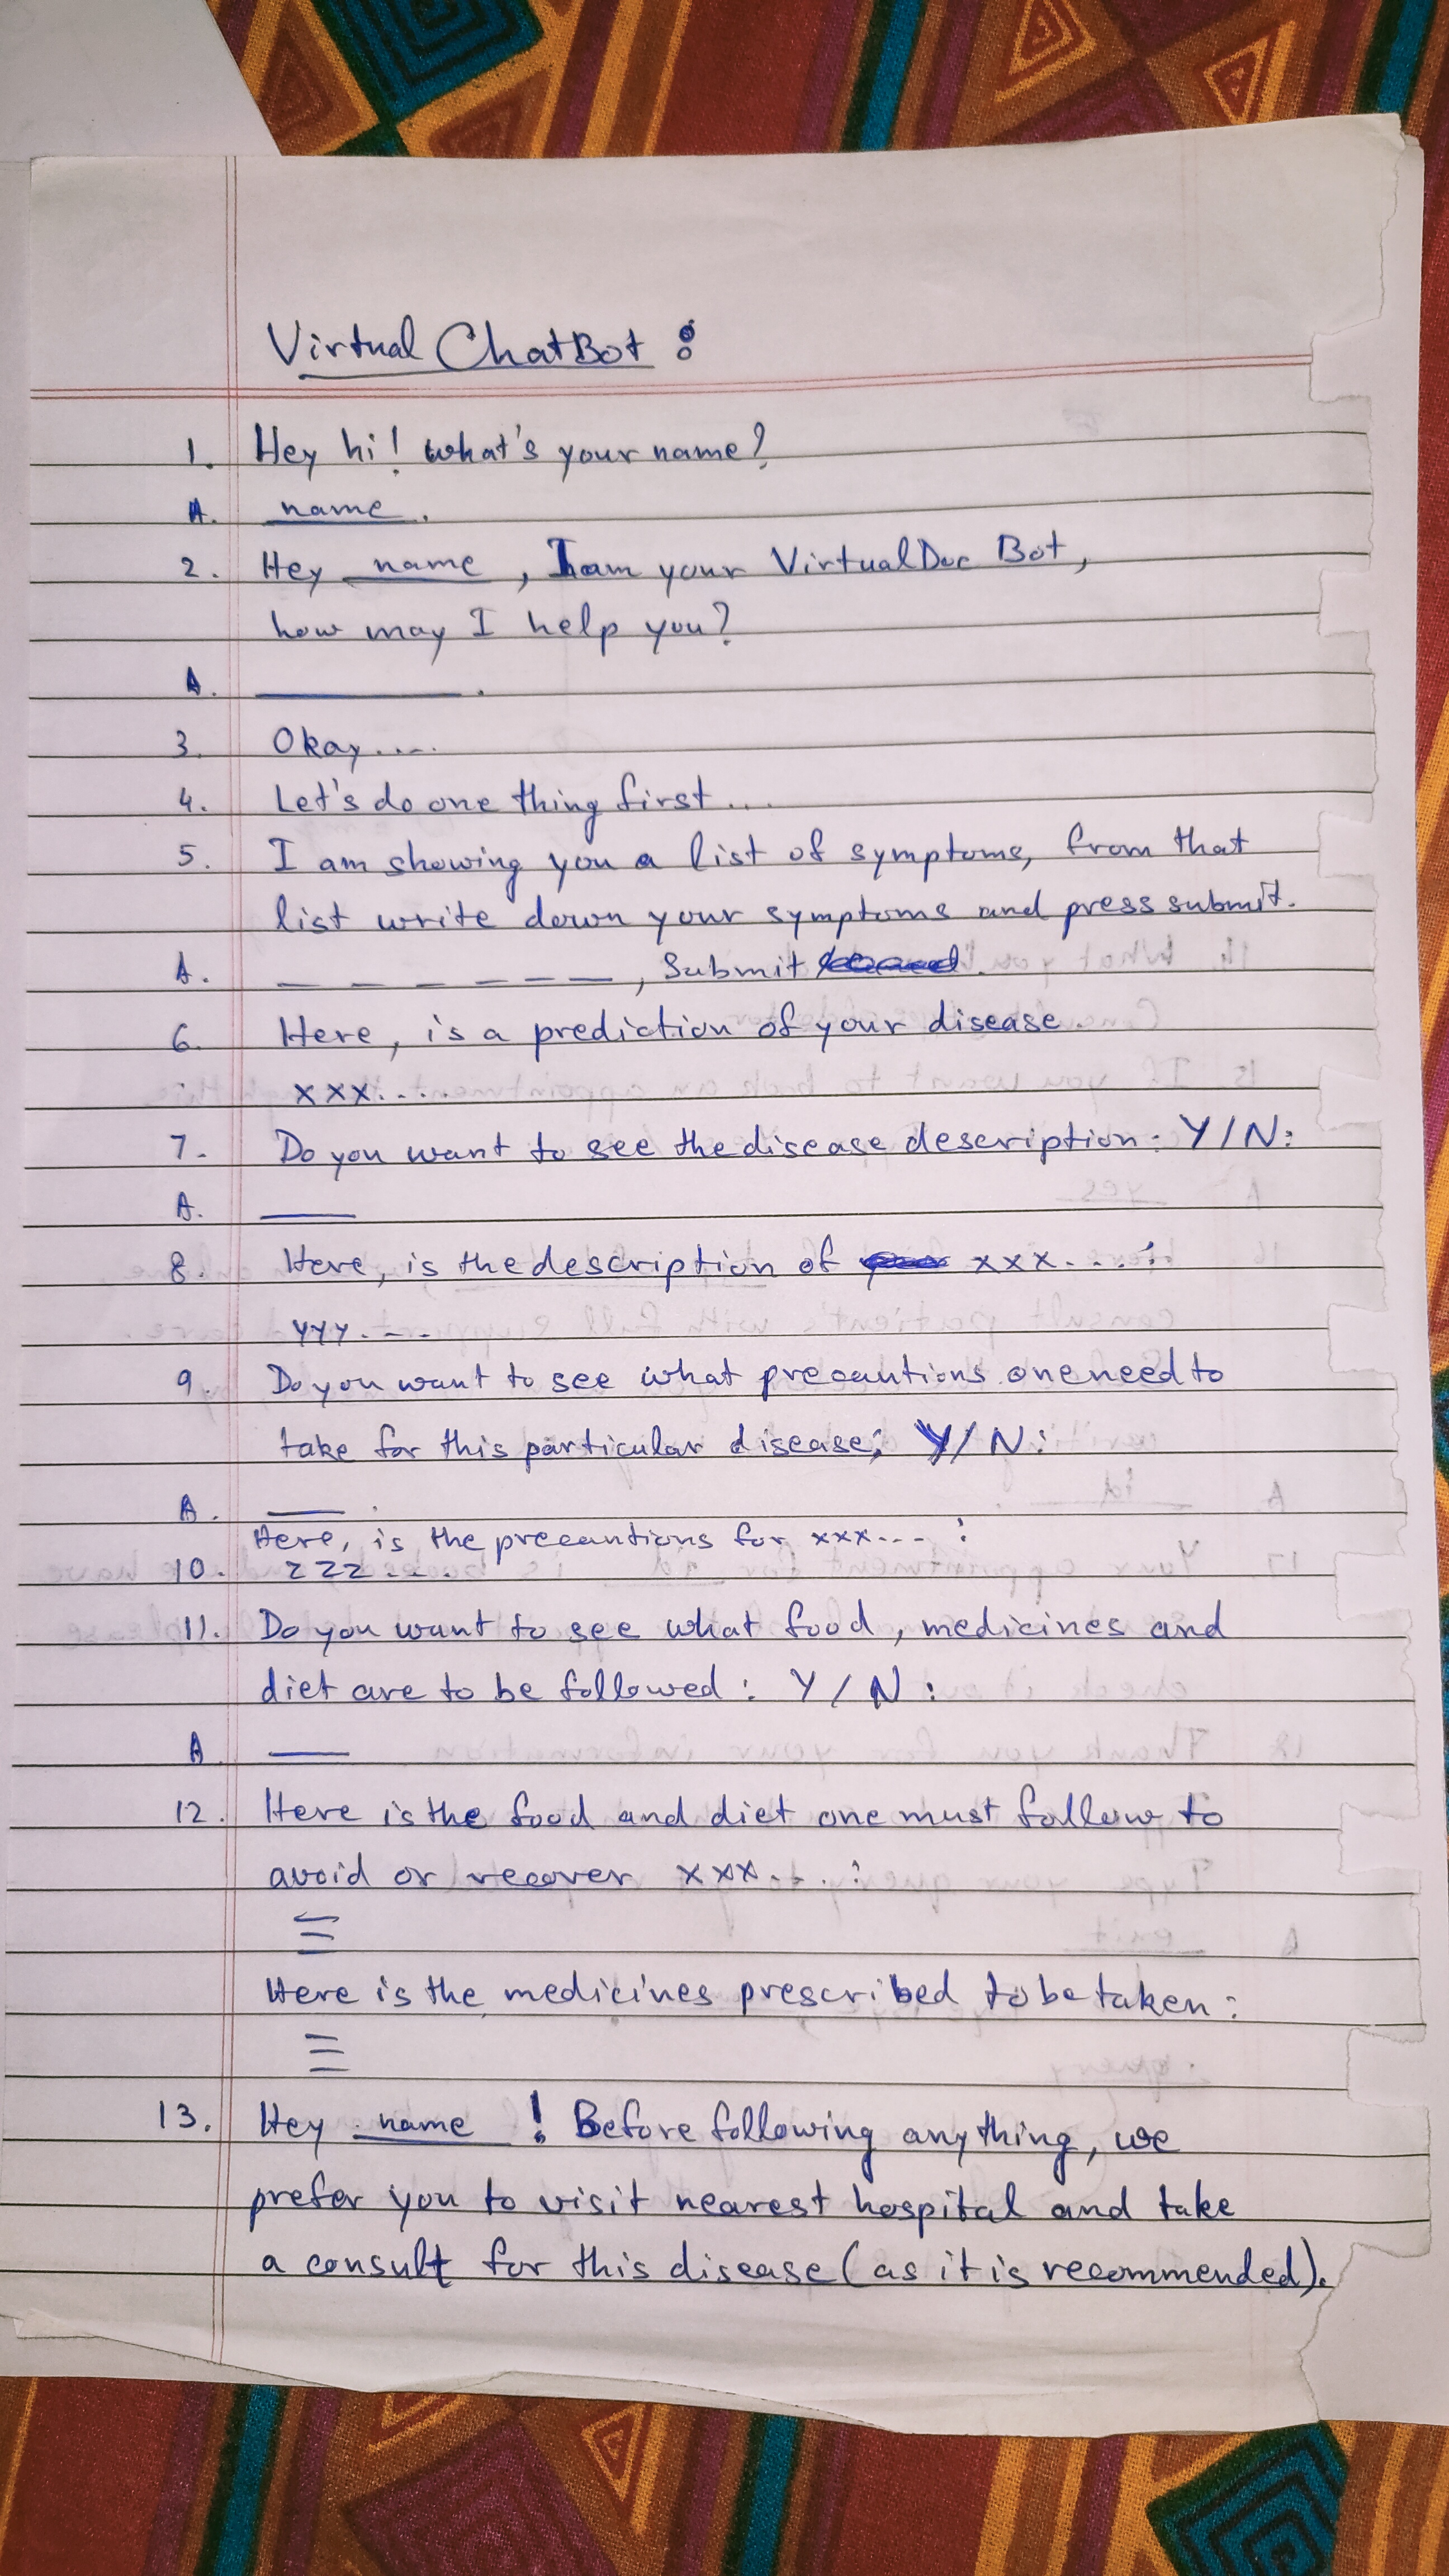 Virtual ChatBot :
1. Hey hi! what's your name?
A. name.
2. Hey name, I am your VirtualDoc Bot,
how may I help you?
A. ________.
3. Okay....
4. Let's do one thing first...
5. I am showing you a list of symptoms, from that
list write down your symptoms and press submit.
A. _ _ _ _ _ _, Submit
6. Here, is a prediction of your disease.
xxx....
7. Do you want to see the disease description. Y/N:
A. ____
8. Here, is the description of xxx....:
yyy....
9. Do you want to see what precautions one need to
take for this particular disease; Y/N:
A. ____.
Here, is the precautions for xxx...:
10. zzz....
11. Do you want to see what food, medicines and
diet are to be followed: Y/N:
A ____
12. Here is the food and diet one must follow to
avoid or recover xxx....:
Here is the medicines prescribed to be taken:
13. Hey name! Before following anything, we
prefer you to visit nearest hospital and take
a consult for this disease (as it is recommended).